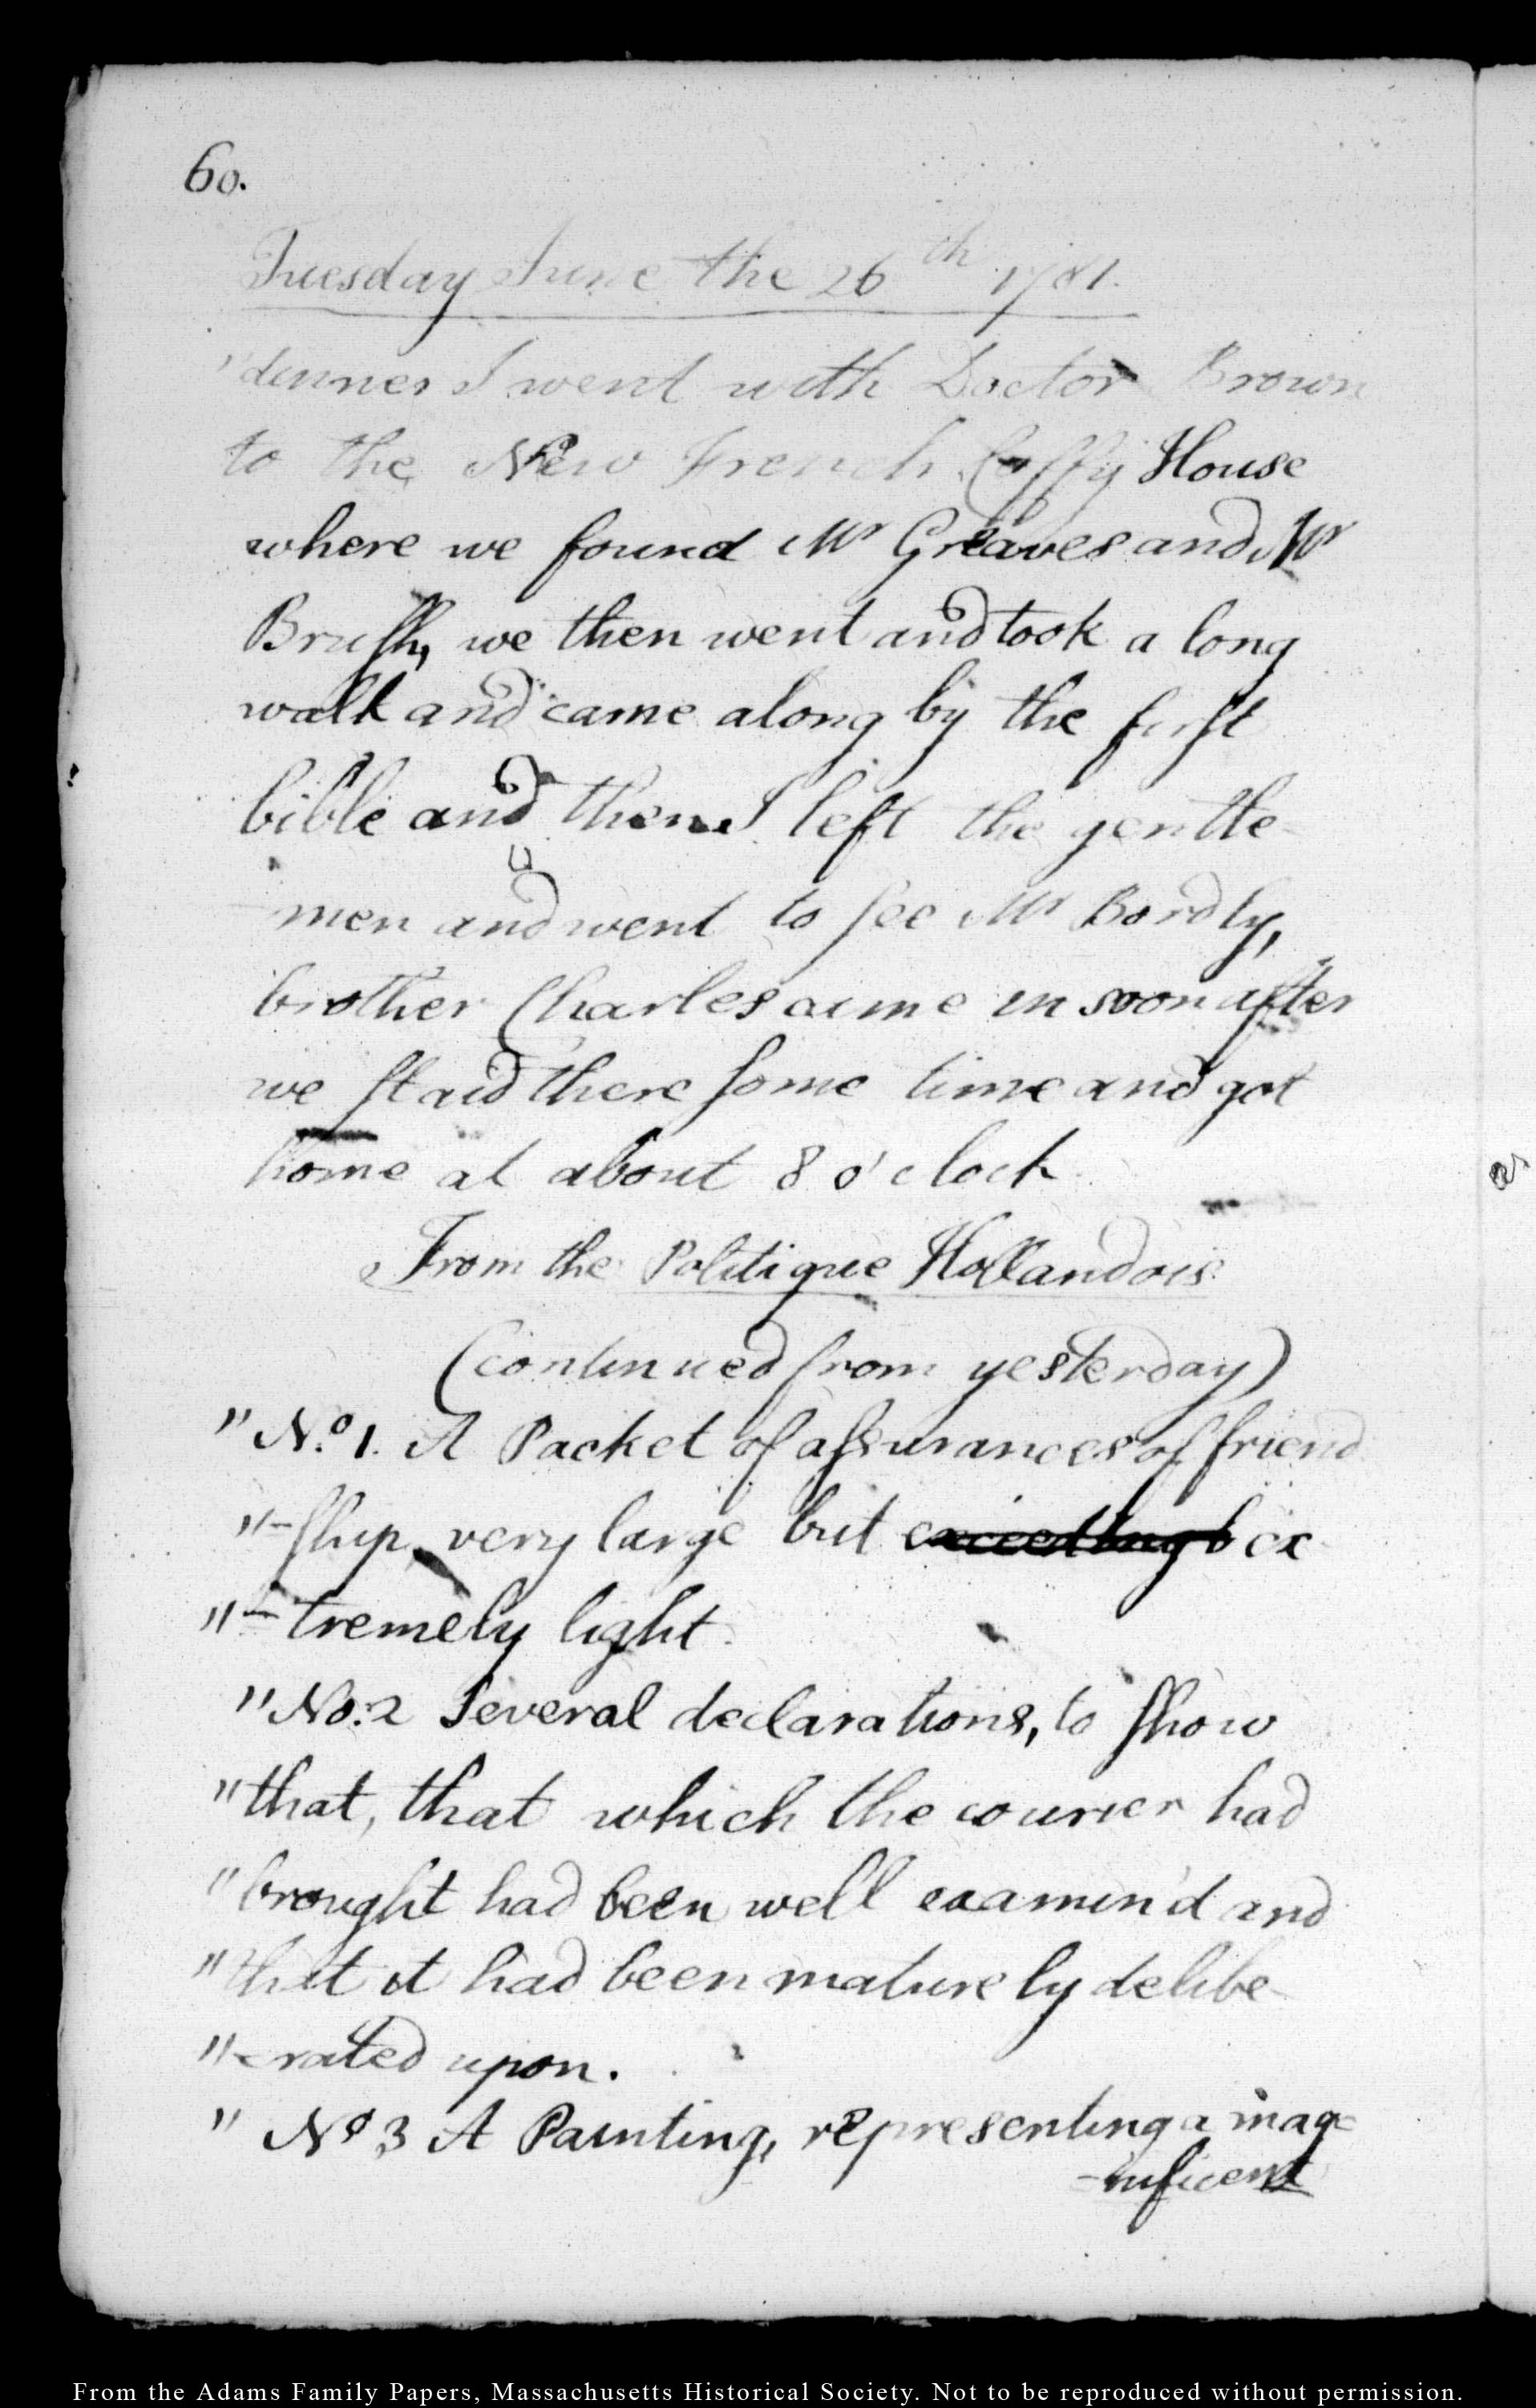 60.
Tuesday June the 26th 1781.
"dinner I went with Doctor Brown
to the New French Coffy House
where we found Mr Greaves and Mr
Brush, we then went and took a long
walk and came along by the first
bible and then I left the gentle-
men and went to see Mr Bordly,
brother Charles came in soon after
we staid there some time and got
home at about 8 o'clock
From the Politique Hollandois
(continued from yesterday)
"No. 1. A Packet of assurances of friend
"-ship, very large but ex
"-tremely light.
"No. 2 Several declarations, to show
"that, that which the courier had
"brought had been well examin'd and
"that it had been maturely delibe-
"-rated upon.
" No 3 A Painting, representing a mag-
-nificent
From the Adams Family Papers, Massachusetts Historical Society. Not to be reproduced without permission.